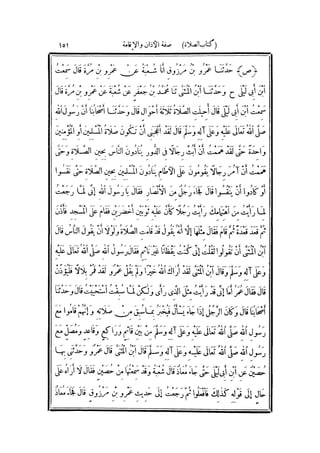 ﴿كتاب الصلاة﴾ صفة الأذان والإقامة ١٥١
﴿ص﴾ حَدَّثَنَا عَمْرُو بْنُ مَرْزُوقٍ أَنَا شُعْبَةُ عَنْ عَمْرِو بْنِ مُرَّةَ قَالَ سَمِعْتُ
ابْنَ أَبِي لَيْلَى ح وَحَدَّثَنَا ابْنُ الْمُثَنَّى ثَنَا مُحَمَّدُ بْنُ جَعْفَرٍ عَنْ شُعْبَةَ عَنْ عَمْرِو بْنِ مُرَّةَ قَالَ
سَمِعْتُ ابْنَ أَبِي لَيْلَى قَالَ أُحِيلَتِ الصَّلَاةُ ثَلَاثَةَ أَحْوَالٍ قَالَ وَحَدَّثَنَا أَصْحَابُنَا أَنَّ رَسُولَ اللهِ
صَلَّى اللهُ تَعَالَى عَلَيْهِ وَعَلَى آلِهِ وَسَلَّمَ قَالَ لَقَدْ أَعْجَبَنِي أَنْ تَكُونَ صَلَاةُ الْمُسْلِمِينَ أَوِ الْمُؤْمِنِينَ
وَاحِدَةً حَتَّى لَقَدْ هَمَمْتُ أَنْ أَبُثَّ رِجَالًا فِي الدُّورِ يُنَادُونَ النَّاسَ بِحِينِ الصَّلَاةِ وَحَتَّى
هَمَمْتُ أَنْ آمُرَ رِجَالًا يَقُومُونَ عَلَى الْآطَامِ يُنَادُونَ الْمُسْلِمِينَ بِحِينِ الصَّلَاةِ حَتَّى نَقَسُوا
أَوْ كَادُوا أَنْ يَنْقُسُوا قَالَ فَجَاءَ رَجُلٌ مِنَ الْأَنْصَارِ فَقَالَ يَا رَسُولَ اللهِ إِنِّي لَمَّا رَجَعْتُ
لِمَا رَأَيْتُ مِنِ اهْتِمَامِكَ رَأَيْتُ رَجُلًا كَأَنَّ عَلَيْهِ ثَوْبَيْنِ أَخْضَرَيْنِ فَقَامَ عَلَى الْمَسْجِدِ فَأَذَّنَ
ثُمَّ قَعَدَ قَعْدَةً ثُمَّ قَامَ فَقَالَ مِثْلَهَا إِلَّا أَنَّهُ يَقُولُ قَدْ قَامَتِ الصَّلَاةُ وَلَوْلَا أَنْ يَقُولَ النَّاسُ قَالَ
ابْنُ الْمُثَنَّى أَنْ تَقُولُوا لَقُلْتُ إِنِّي كُنْتُ يَقْظَانًا غَيْرَ نَائِمٍ فَقَالَ رَسُولُ اللهِ صَلَّى اللهُ تَعَالَى عَلَيْهِ
وَعَلَى آلِهِ وَسَلَّمَ وَقَالَ ابْنُ الْمُثَنَّى لَقَدْ أَرَاكَ اللهُ خَيْرًا وَلَمْ يَقُلْ عَمْرٌو لَقَدْ فَمُرْ بِلَالًا فَلْيُؤَذِّنْ
قَالَ فَقَالَ عُمَرُ أَمَا إِنِّي قَدْ رَأَيْتُ مِثْلَ الَّذِي رَأَى وَلَكِنْ لَمَّا سُبِقْتُ اسْتَحْيَيْتُ قَالَ وَحَدَّثَنَا
أَصْحَابُنَا قَالَ وَكَانَ الرَّجُلُ إِذَا جَاءَ يَسْأَلُ فَيُخْبَرُ بِمَا سُبِقَ مِنْ صَلَاتِهِ وَإِنَّهُمْ قَامُوا مَعَ
رَسُولِ اللهِ صَلَّى اللهُ تَعَالَى عَلَيْهِ وَعَلَى آلِهِ وَسَلَّمَ مِنْ بَيْنِ قَائِمٍ وَرَاكِعٍ وَقَاعِدٍ وَمُصَلٍّ مَعَ
رَسُولِ اللهِ صَلَّى اللهُ تَعَالَى عَلَيْهِ وَعَلَى آلِهِ وَسَلَّمَ قَالَ ابْنُ الْمُثَنَّى قَالَ عَمْرٌو وَحَدَّثَنِي بِهَا
حُصَيْنٌ عَنِ ابْنِ أَبِي لَيْلَى حَتَّى جَاءَ مُعَاذٌ قَالَ شُعْبَةُ وَقَدْ سَمِعْتُهَا مِنْ حُصَيْنٍ فَقَالَ لَا أَرَاهُ عَلَى
حَالٍ إِلَى قَوْلِهِ كَذَلِكَ فَافْعَلُوا ثُمَّ رَجَعْتُ إِلَى حَدِيثِ عَمْرِو بْنِ مَرْزُوقٍ قَالَ فَجَاءَ مُعَاذٌ